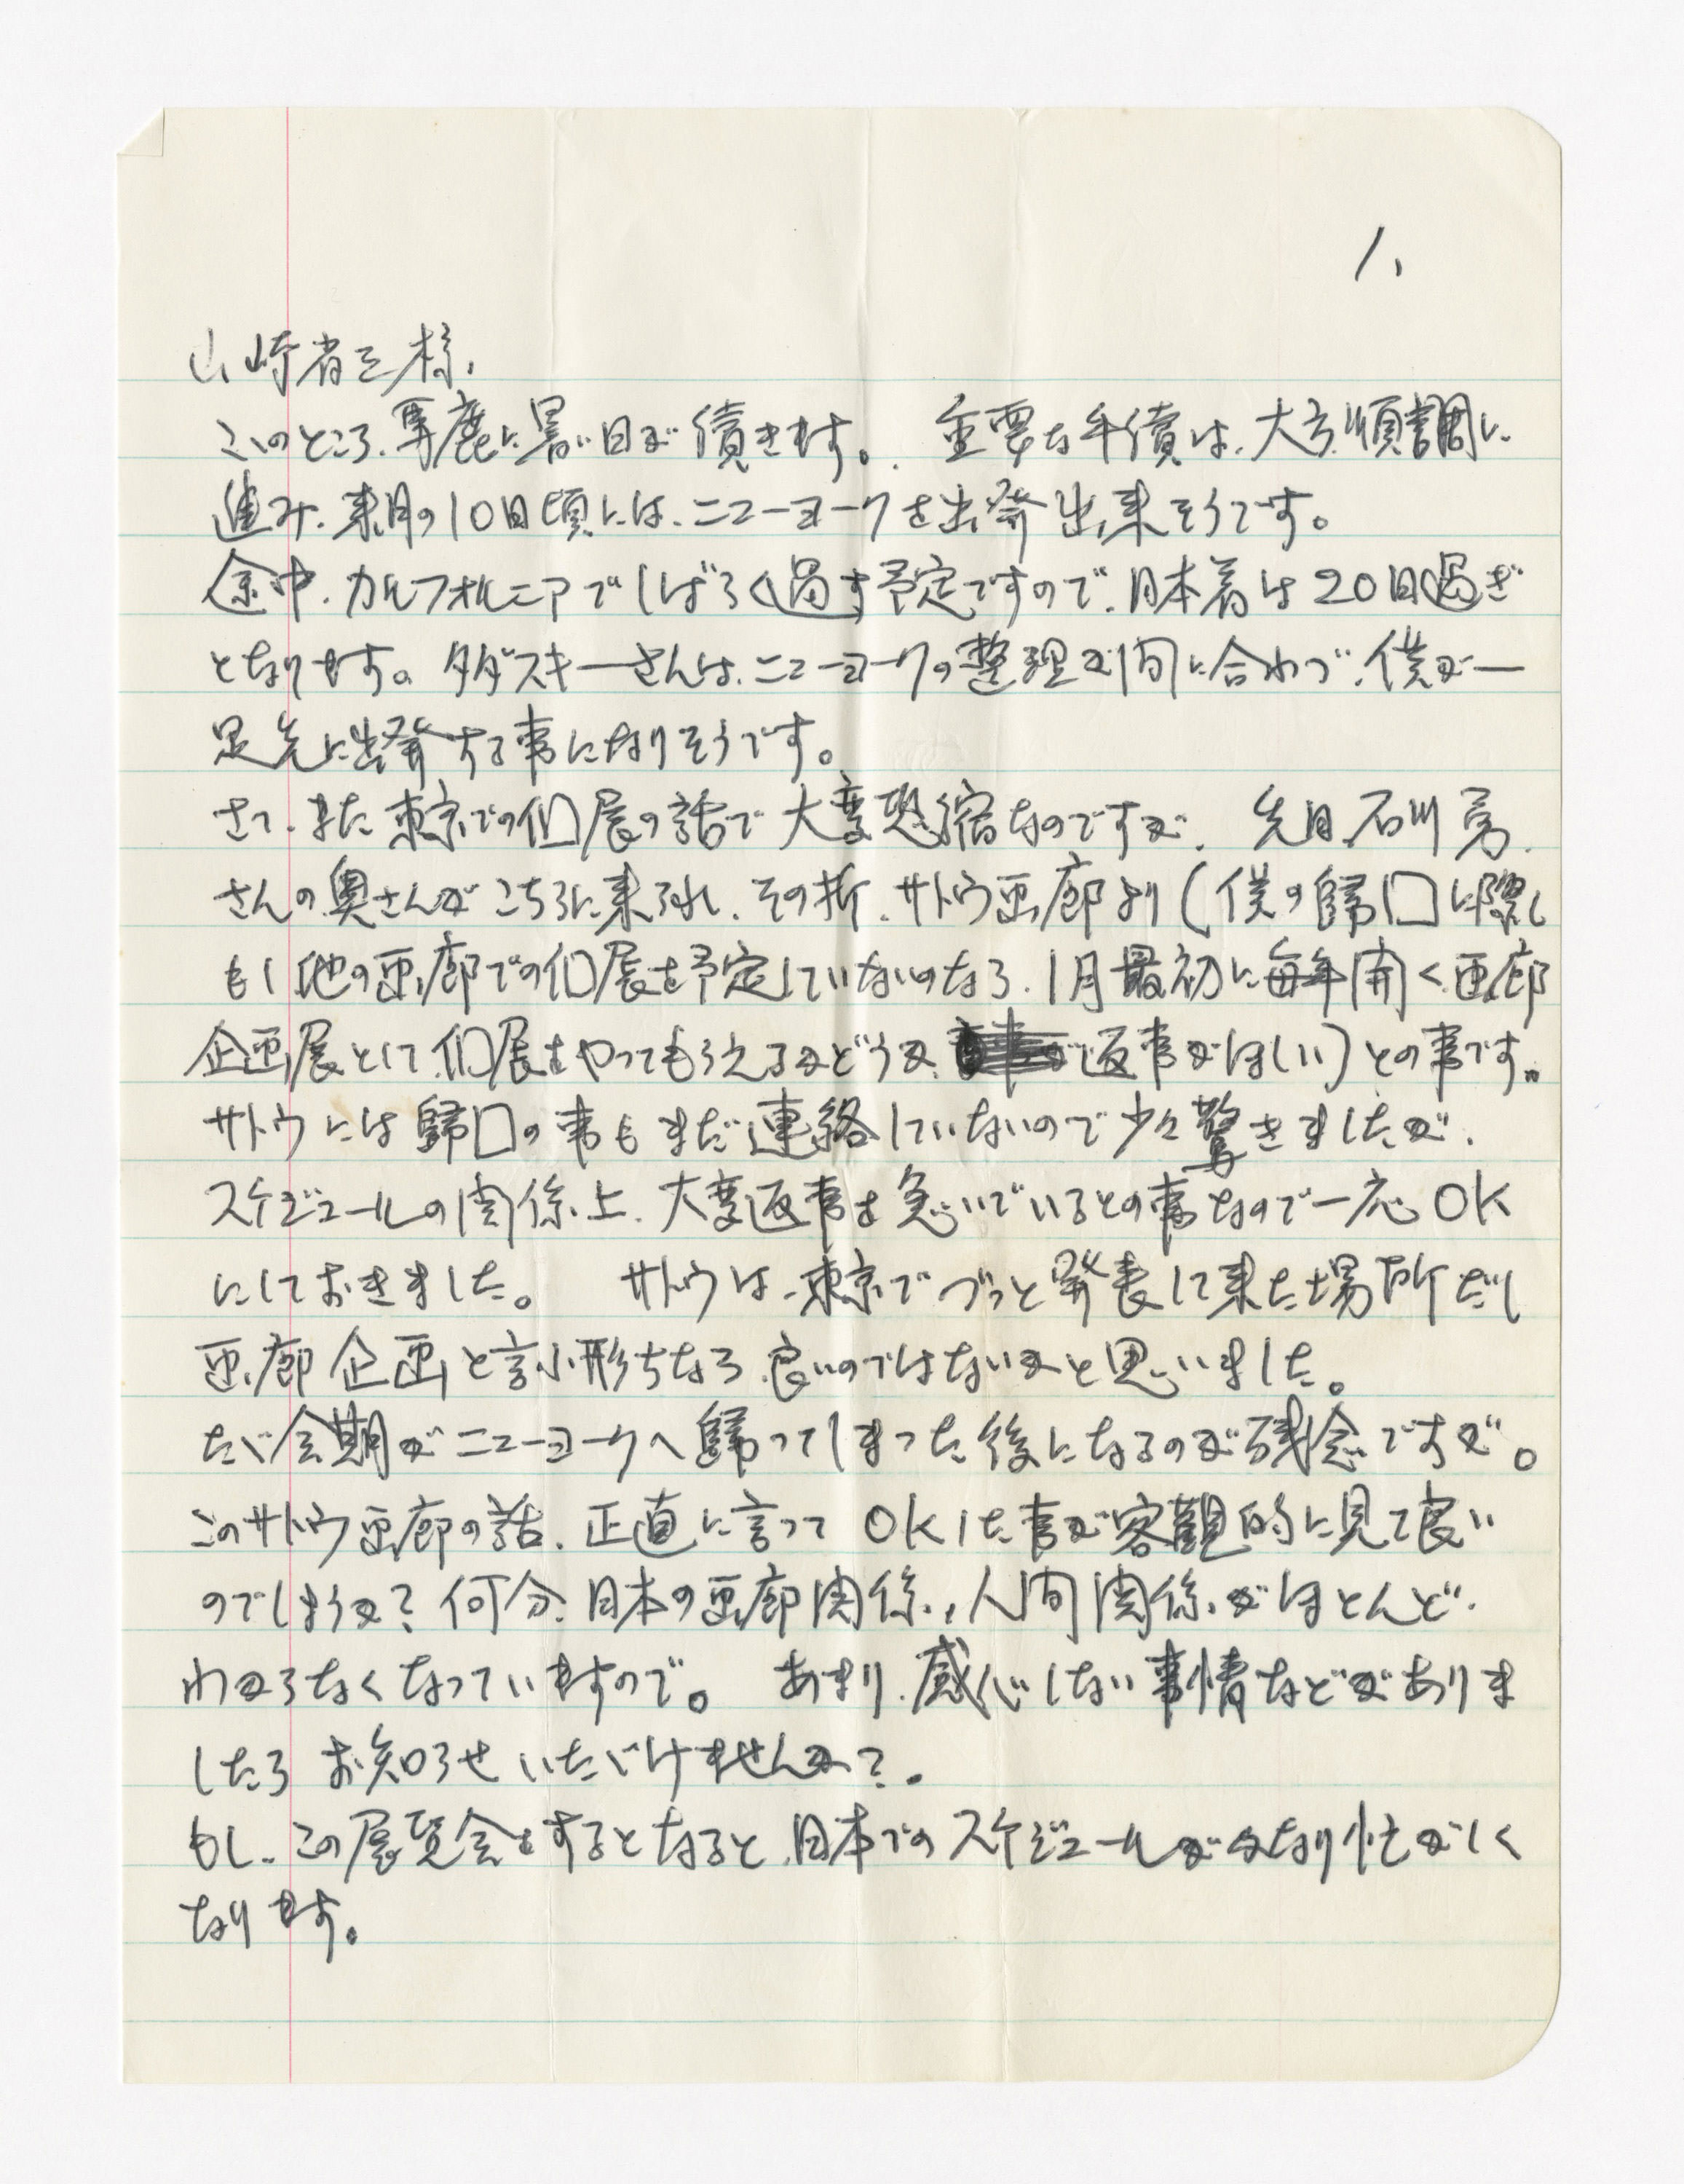 1、
山崎省三様、
このところ、馬鹿に暑い日が続きます。 重要な手続は、大方順調に
進み、来月の10日頃には、ニューヨークを出発出来そうです。
途中、カルフォルニアでしばらく過す予定ですので、日本着は20日過ぎ
となります。タダスキーさんは、ニューヨークの整理が間に合わず、僕が一
足先に出発する事になりそうです。
さて、また東京での個展の話で大変恐縮なのですが、先日、石川勇、
さんの奥さんがこちらに来られ、その折、サトウ画廊より(僕の帰国に際し
もし他の画廊での個展を予定していないのなら、1月最初に毎年開く画廊
企画展として、個展をやってもらえるかどうか、返事がほしい)との事です。
サトウには帰国の事もまだ連絡していないので少々驚きましたが、
スケジュールの関係上、大変返事を急いでいるとの事なので一応OK
にしておきました。 サトウは、東京でづっと発表して来た場所だし
画廊企画と言ふ形ちなら、良いのではないかと思いました。
たゞ会期がニューヨークへ帰ってしまった後になるのが残念ですが。
このサトウ画廊の話、正直に言って OKした事が客観的に見て良い
のでしょうか? 何分、日本の画廊関係、人間関係、がほとんど、
わからなくなっていますので。 あまり、感心しない事情などがありま
したら お知らせいたゞけませんか?。
もし、この展覧会をするとなると、日本でのスケジュールがかなり忙がしく
なります。